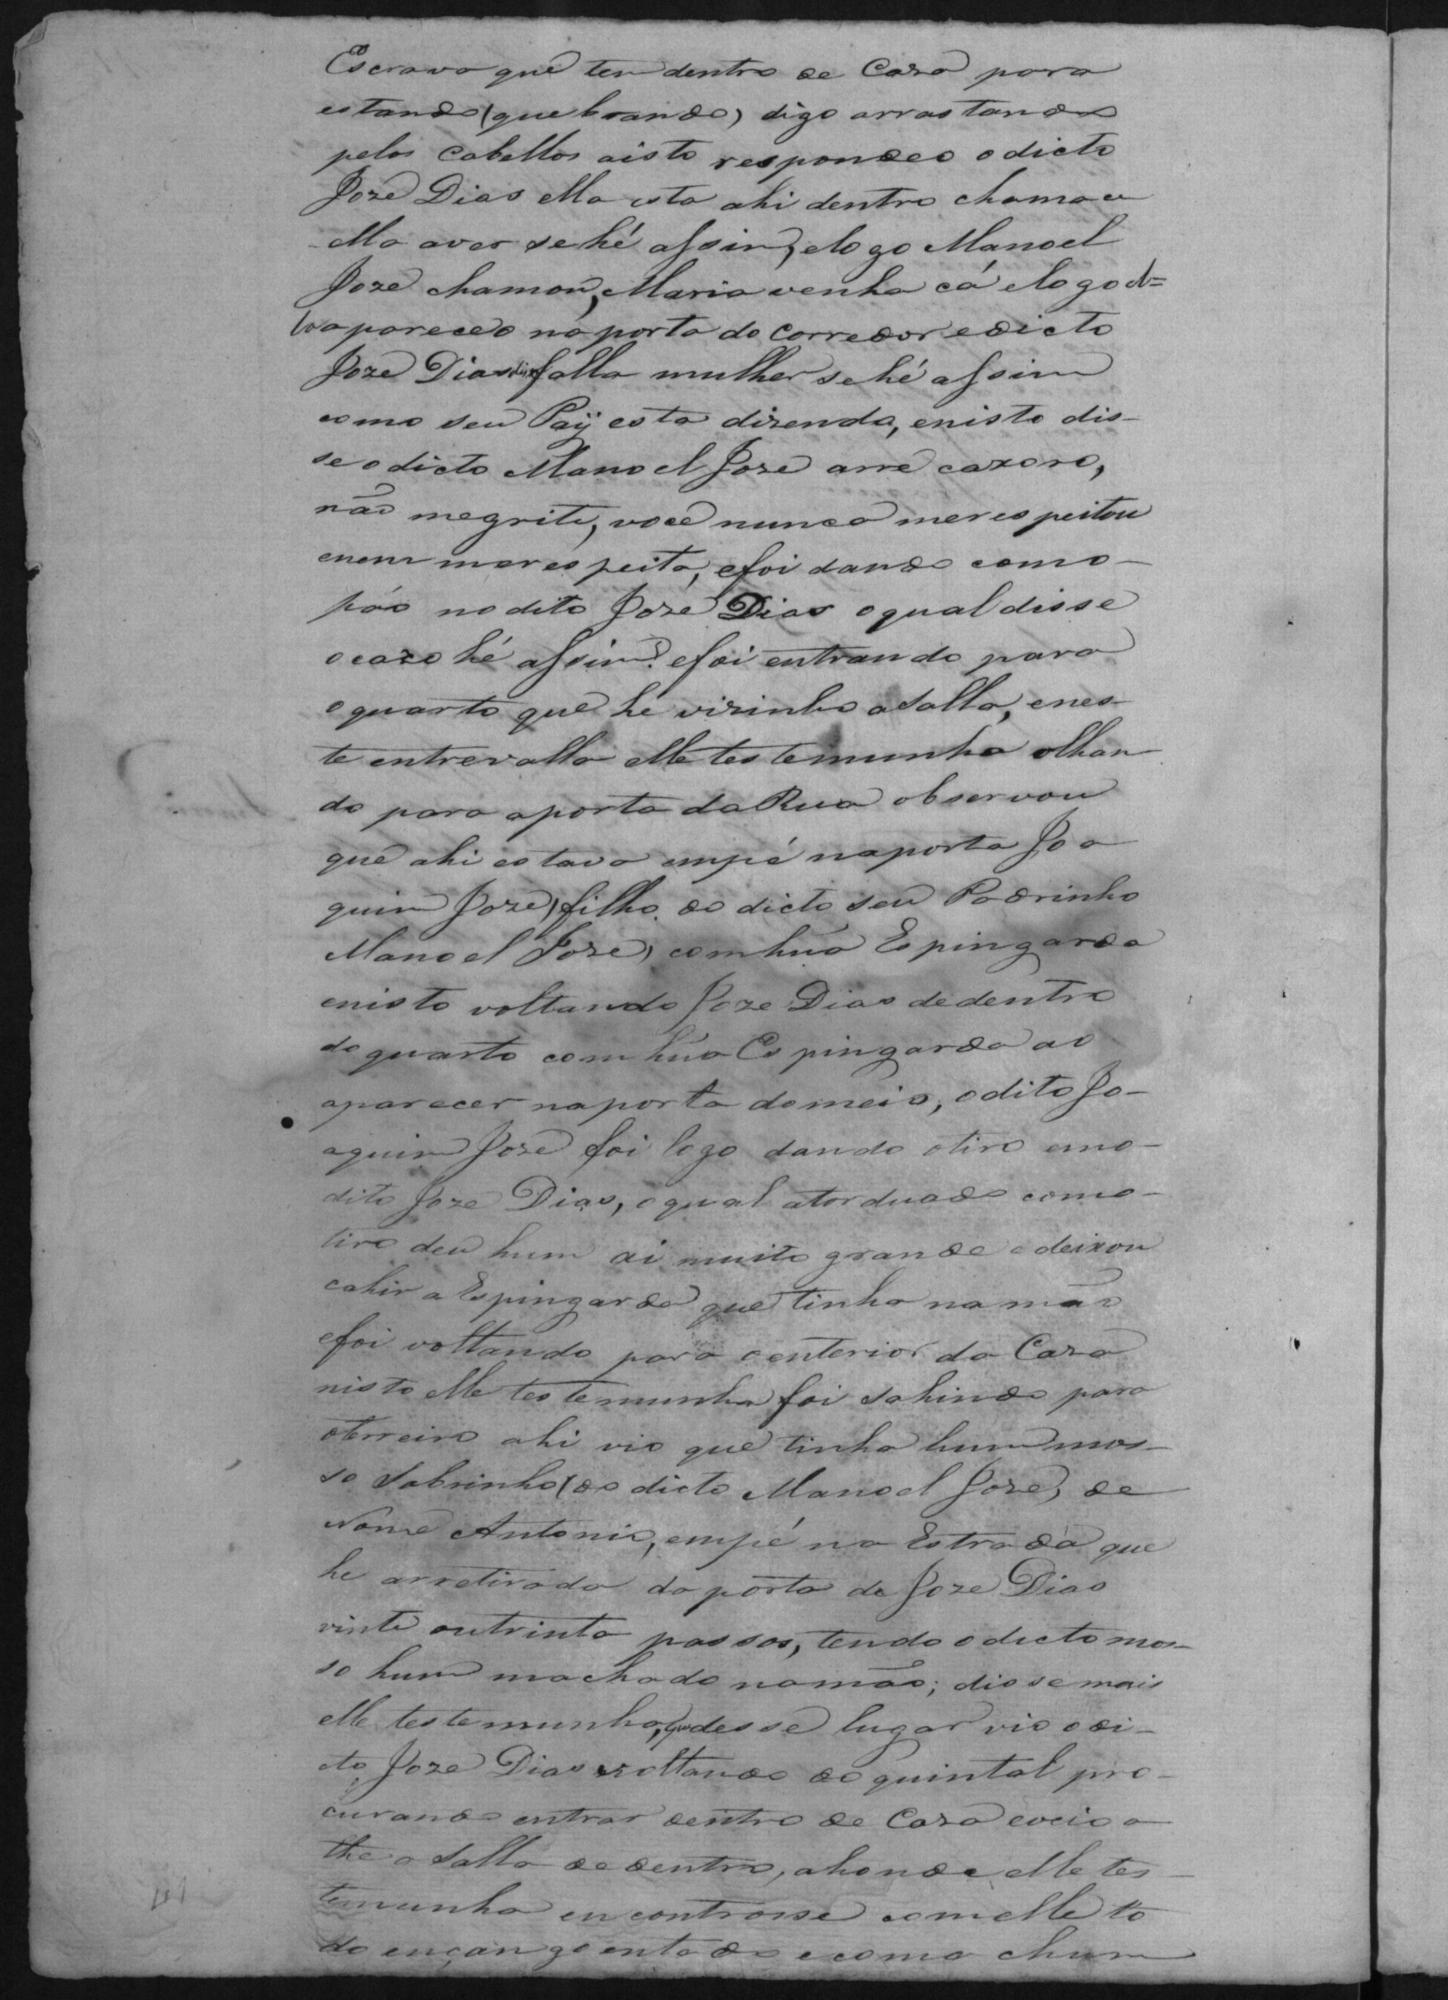 Escrava que tem dentro de Caza para
estando (quebrando) digo arrastando
pelos Cabellos aisto respondeo o dicto
Joze Dias ella esta ahi dentro chama a
ella aver se hé assim, e logo Manoel
Joze chamou, Maria venha cá e logo el=
la apareceo na porta do corredor e dicto
Joze Dias disse falla mulher se hé assim
como seu Paÿ esta dizendo, e nisto dis-
se o dicto Manoel Joze arre cazoro,
não me grite, você nunca me respeitou
enem me respeita, e foi dando como-
páo no dito Joze Dias o qual disse
o cazo hé assim? e foi entrando para
o quarto que he vizinho a Salla, enes-
te entrevallo elle testemunha olhan
do para aporta da Rua observou
que ahi estava empé na porta Joa
quim Joze, filho do dicto seu Padrinho
Manoel Joze, com hua Espingarda
enisto voltando Joze Dias de dentro
do quarto com hua Espingarda ao
aparecer na porta do meio, o dito Jo-
aquim Joze foi logo dando o tiro emo-
dito Joze Dias, o qual atorduado como-
tiro deu hum ai muito grande e deixou
cahir a Espingarda que tinha na mão
e foi voltando para o enterior da Caza
nisto elle testemunha foi sahindo para
oterreiro ahi vio que tinha hum mos-
so Sobrinho (do dicto Manoel Joze, de
Nome Antonio, empé na Estrada que
he arretirada da porta de Joze Dias
vinte outrinta passos, tendo o dicto mos-
so hum machado na mão; disse mais
elle testemunha, que desse lugar vio o di-
cto Joze Dias voltando do quintal pro-
curando entrar dentro de Caza eveio a
the a Salla de dentro, ahonde elle tes-
temunha encontrouse com elle to
do ençangoentado e como chum